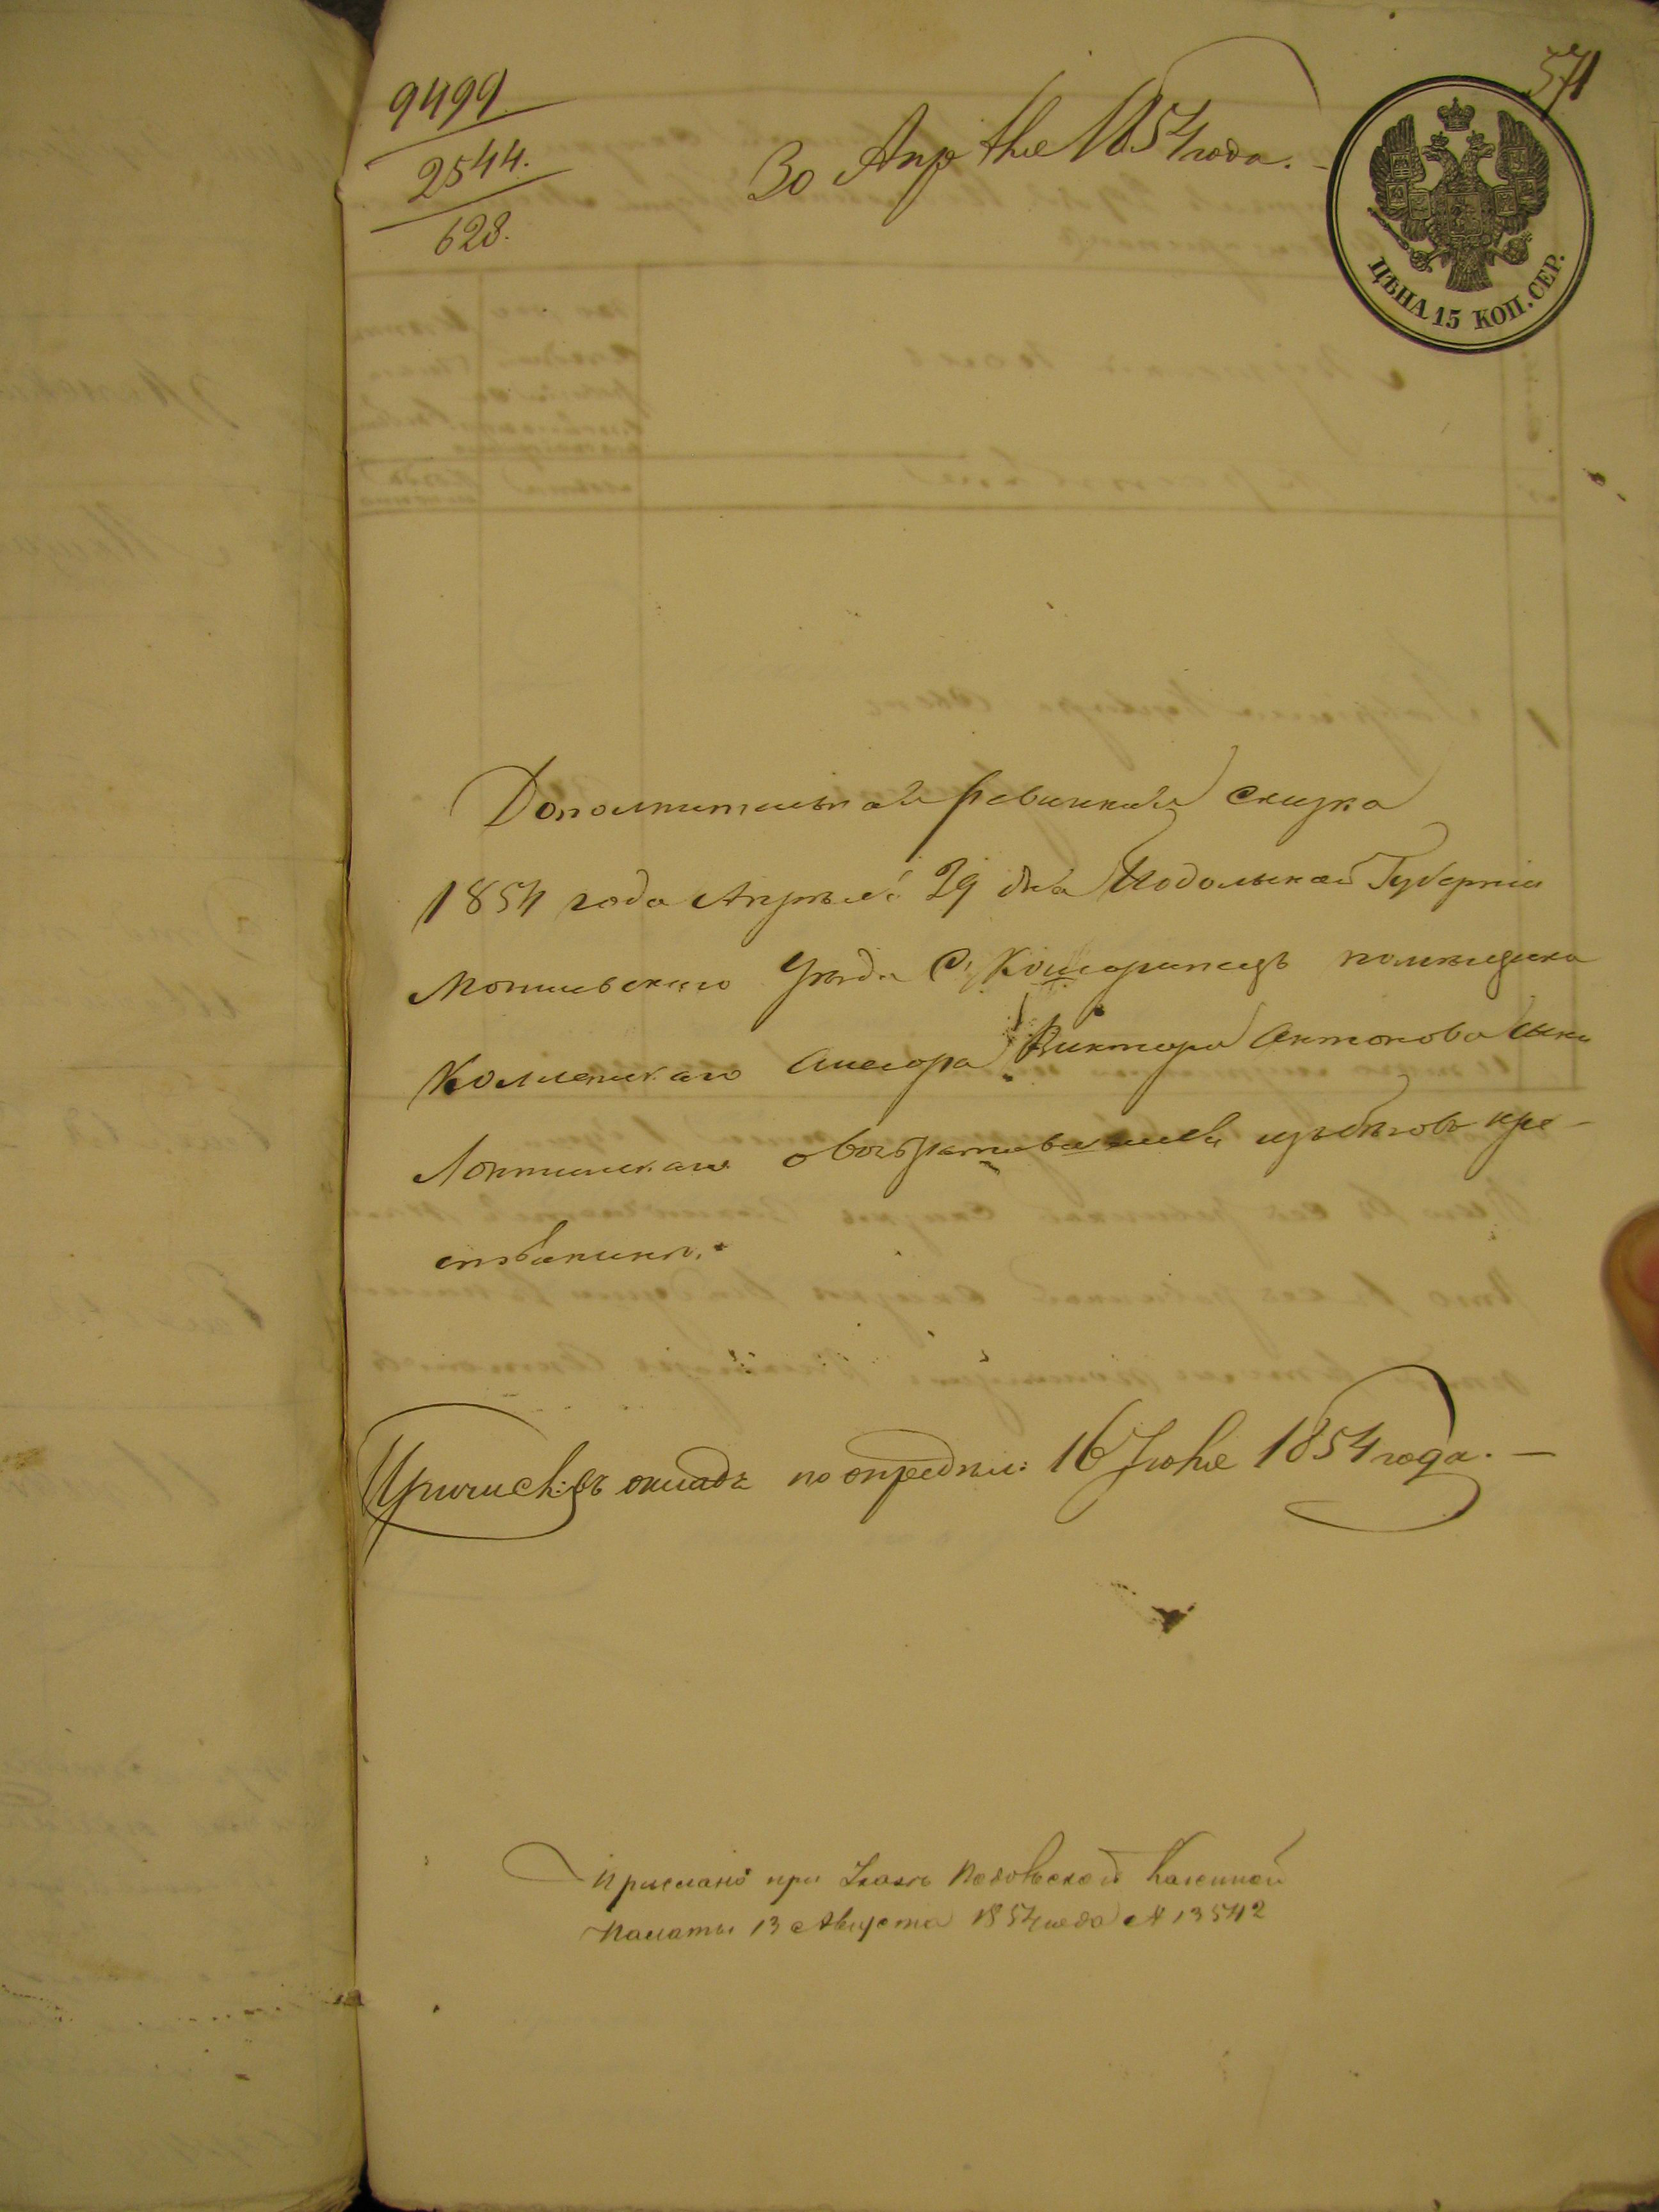 9499
2544.
628.
30 Апрѣля 1854 года.
571
ЦѢНА 15 КОП. СЕР.
Дополнительная ревизкая сказка
1854 года Апрѣля 29 дня Подольской Губерніи
Могилевскаго Уѣзда С. помѣщика
Коллежскаго Асесора Виктора Антонова сына
о возвратившихся изъ бѣговъ кре-
стьянина.
Причисл: въ окладъ по опредѣл: 16 Іюня 1854 года. —
Прислано при Указѣ Подольской Казенной
Палаты 13 Августа 1854 года № 13542